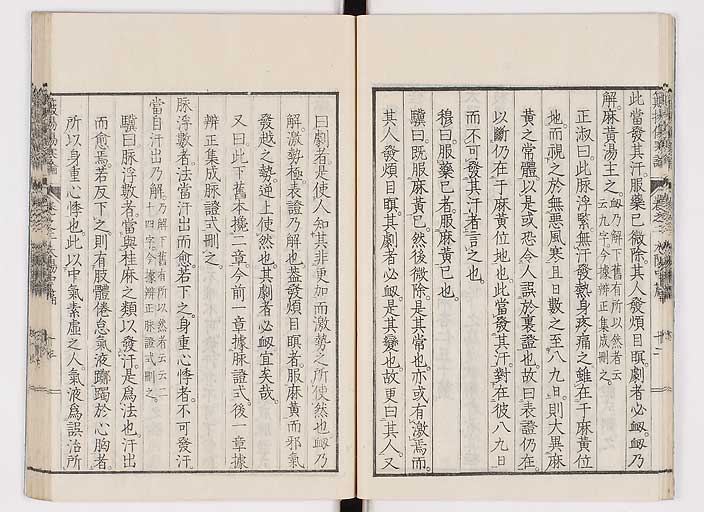 此當發其汗。服藥已微除。其人發煩目瞑。劇者必衄。衄乃
解。麻黃湯主之。衄乃解下舊有所以然者云
云九字今據辨正集成刪之。
正淑曰。此脈浮緊無汗發熱。身疼痛之雖在于麻黃位
地。而視之於無惡風寒。且日數之至八九日。則大異麻
黃之常體。以是或恐令人誤於裏證也。故曰表證仍在。
以斷仍在于麻黃位地也。此當發其汗。對在彼八九日
而不可發其汗者言之也。
穆曰。服藥已者。服麻黃已也。
驥曰。既服麻黃已。然後微除。是其常也。亦或有激焉而。
其人發煩目瞑。其劇者必衄。是其變也。故更曰其人。又
曰劇者。是使人知其非更加而激勢之所使然也。衄乃
解。激勢極。表證乃解也。蓋發煩目瞑者。服麻黃而邪氣
發越之勢。逆上使然也。其劇者必衄宜矣哉。
又曰。此下舊本攙二章。今前一章據脈證式。後一章據
辨正集成脈證式刪之。
脈浮數者。法當汗出而愈。若下之。身重心悸者。不可發汗。
當自汗出乃解。乃解下舊有所以然者云云二
十四字今據辨正脈證式刪之。
驥曰。脈浮數者。當與桂麻之類以發汗。是爲法也。汗出
而愈焉。若反下之。則有肢體倦怠。氣液躑躅於心胸者。
所以身重心悸也。此以中氣素虛之人。氣液爲誤治所